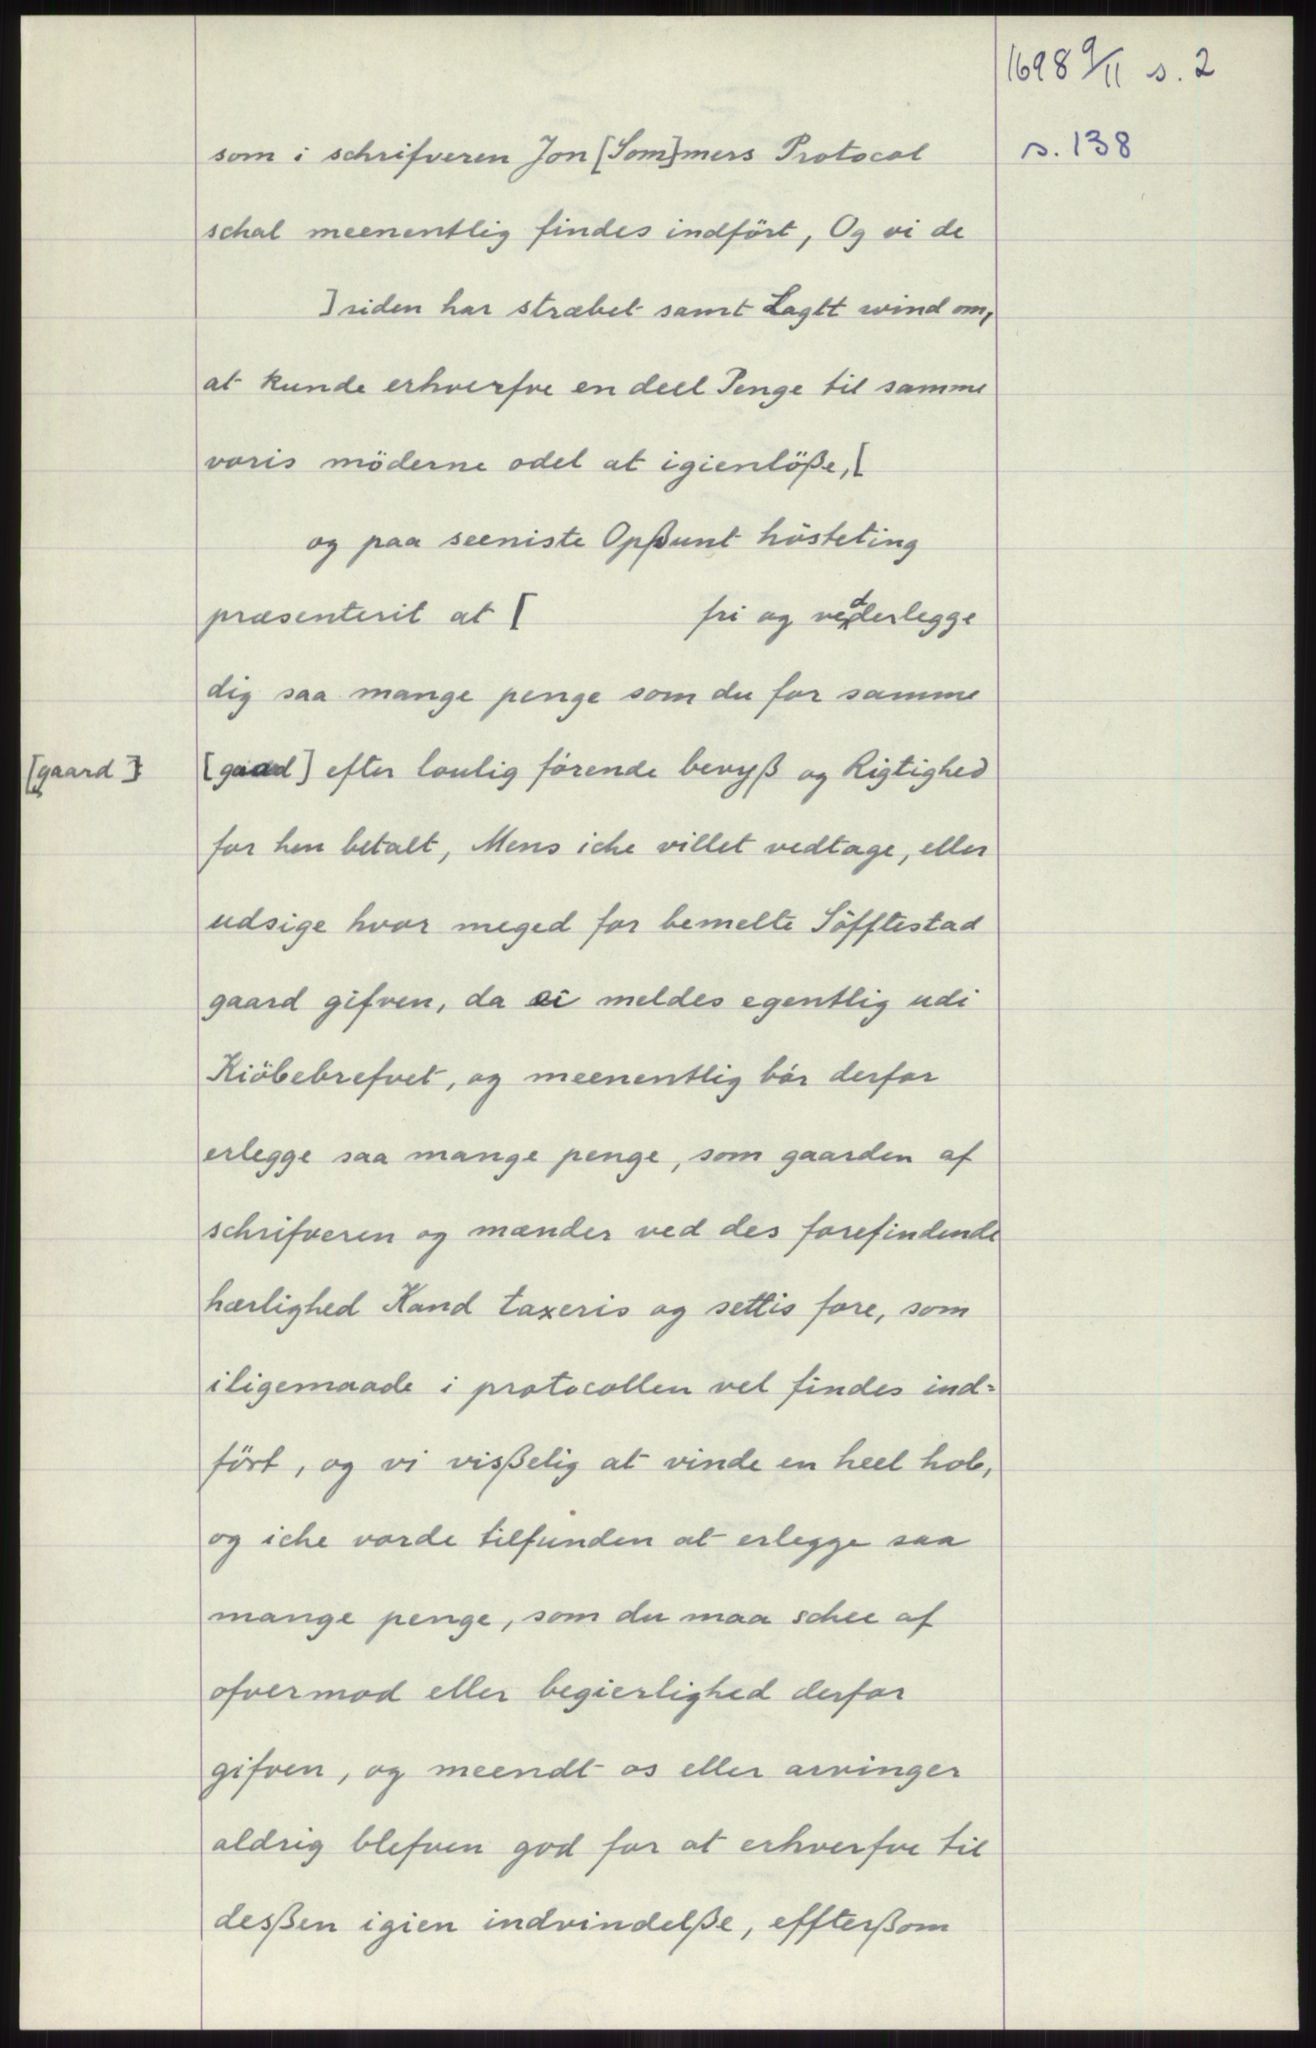 1698 9/11 s. 2
s. 138
som i schrifveren Jon [Som]mers Protocol
schal meenentlig findes indfört, Og vi de
] siden har stræbet samt Lagtt wind om,
at kunde erhverfve en deel Penge til samme
voris möderne odel at igienlöße, [
og paa seeniste Opßunt hösteting
præsenterit at [ fri og vederlegge
dig saa mange penge som du for samme
[gaard] [gaard] efter loulig förende bevyß og Rigtighed
for hen betalt, Mens iche villet vedtage, eller
udsige hvor meged for bemelte Söfftestad
gaard gifven, da ei meldes egentlig udi
Kiöbebrefvet, og meenentlig bör derfor
erlegge saa mange penge, som gaarden af
schrifveren og mænder ved des forefindende
hærlighed Kand taxeris og settis fore, som
iligemaade i protocollen vel findes ind=
fört, og vi visßelig at vinde en heel hob,
og iche vorde tilfunden at erlegge saa
mange penge, som du maa schee af
ofvermod eller begierlighed derfor
gifven, og meendt os eller arvinger
aldrig blefven god for at erhverfve til
desßen igien indvindelße, effterßom